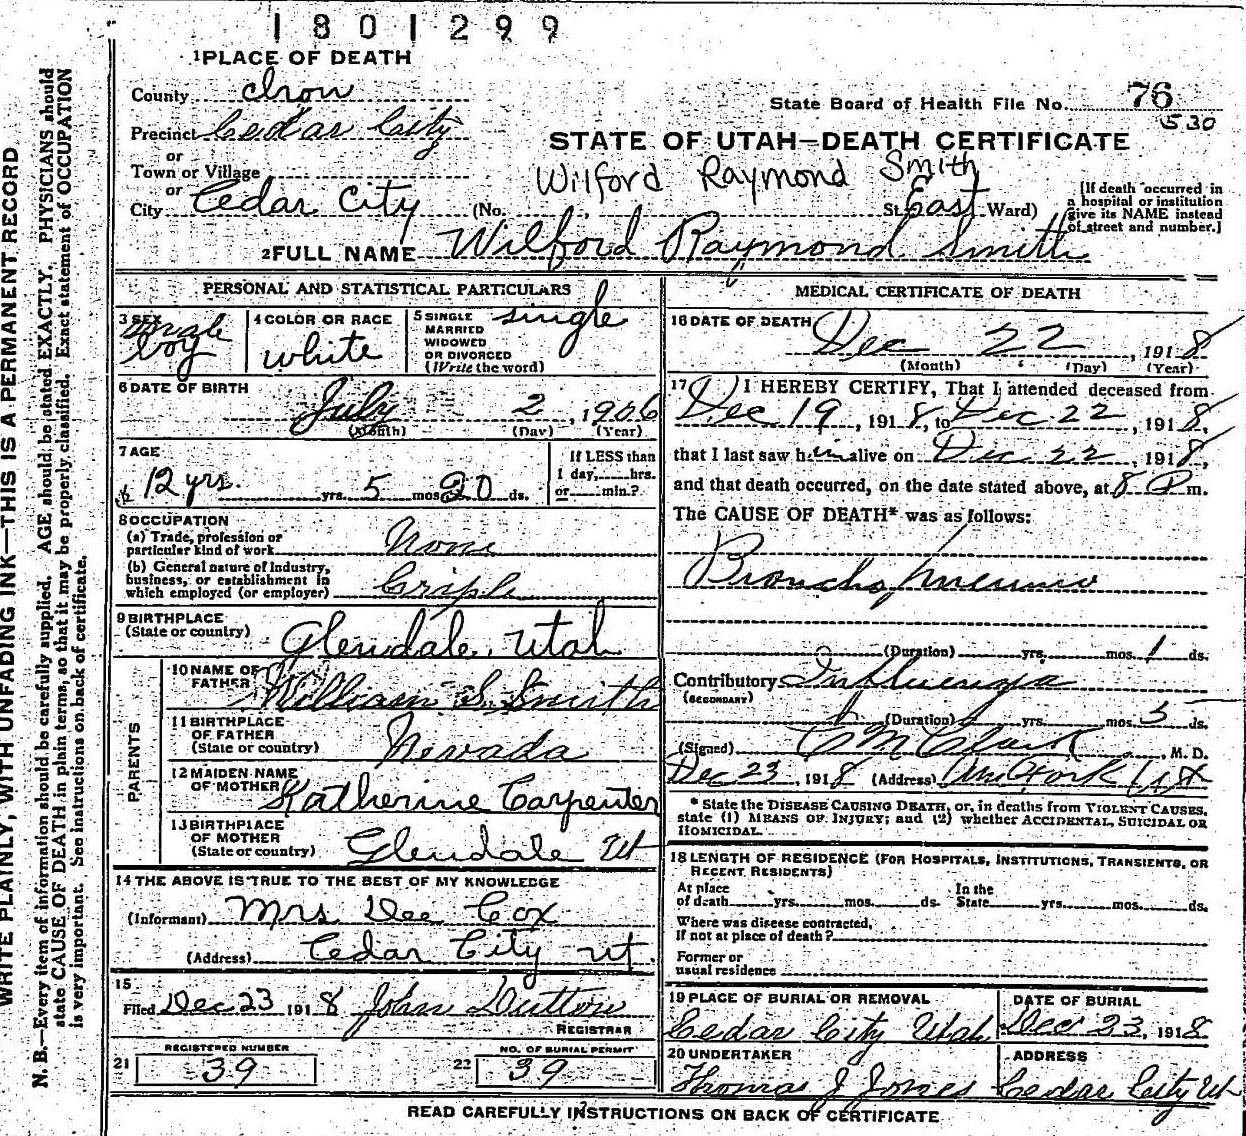 1801299
WRITE PLAINLY, WITH UNFADING INK—THIS IS A PERMANENT RECORD
N. B.—Every item of information should be carefully supplied. AGE should be stated EXACTLY. PHYSICIANS should
state CAUSE OF DEATH in plain terms, so that it may be properly classified. Exact statement of OCCUPATION
is very important. See instructions on back of certificate.
1 PLACE OF DEATH
County Iron
Precinct Cedar City
or
Town or Village
or
City Cedar City
State Board of Health File No. 76
530
STATE OF UTAH—DEATH CERTIFICATE
Wilford Raymond Smith
(No. St. East Ward)
[If death occurred in
a hospital or institution
give its NAME instead
of street and number.]
2 FULL NAME Wilford Raymond Smith
PERSONAL AND STATISTICAL PARTICULARS
3 SEX male
boy
4 COLOR OR RACE
white
5 SINGLE
MARRIED
WIDOWED
OR DIVORCED
(Write the word)
single
6 DATE OF BIRTH
July 2, 1906
(Month) (Day) (Year)
7 AGE
12 yrs. yrs. 5 mos. 20 ds.
If LESS than
1 day, hrs.
or min.?
8 OCCUPATION
(a) Trade, profession or
particular kind of work None
(b) General nature of industry,
business, or establishment in
which employed (or employer) Criple
9 BIRTHPLACE
(State or country) Glendale, Utah
PARENTS
10 NAME OF
FATHER William S. Smith
11 BIRTHPLACE
OF FATHER
(State or country) Nevada
12 MAIDEN NAME
OF MOTHER Katherine Carpenter
13 BIRTHPLACE
OF MOTHER
(State or country) Glendale Ut
14 THE ABOVE IS TRUE TO THE BEST OF MY KNOWLEDGE
(Informant) Mrs Dee Cox
(Address) Cedar City Ut.
15
Filed Dec 23 1918 John Dutton
REGISTRAR
REGISTERED NUMBER
21 39
NO. OF BURIAL PERMIT
22 39
MEDICAL CERTIFICATE OF DEATH
16 DATE OF DEATH
Dec 22, 1918
(Month) (Day) (Year)
17 I HEREBY CERTIFY, That I attended deceased from
Dec 19, 1918, to Dec 22, 1918,
that I last saw him alive on Dec 22, 1918,
and that death occurred, on the date stated above, at 8 P m.
The CAUSE OF DEATH* was as follows:
Broncho pneumonia
(Duration) yrs. mos. 1 ds.
Contributory Influenza
(SECONDARY)
(Duration) yrs. mos. 5 ds.
(Signed) M. D.
Dec 23, 1918 (Address)
* State the DISEASE CAUSING DEATH, or, in deaths from VIOLENT CAUSES,
state (1) MEANS OF INJURY; and (2) whether ACCIDENTAL, SUICIDAL OR
HOMICIDAL.
18 LENGTH OF RESIDENCE (FOR HOSPITALS, INSTITUTIONS, TRANSIENTS, OR
RECENT RESIDENTS)
At place In the
of death yrs. mos. ds. State yrs. mos. ds.
Where was disease contracted,
If not at place of death?
Former or
usual residence
19 PLACE OF BURIAL OR REMOVAL
Cedar City Utah
DATE OF BURIAL
Dec 23, 1918
20 UNDERTAKER
Thomas J Jones
ADDRESS
Cedar City Ut
READ CAREFULLY INSTRUCTIONS ON BACK OF CERTIFICATE